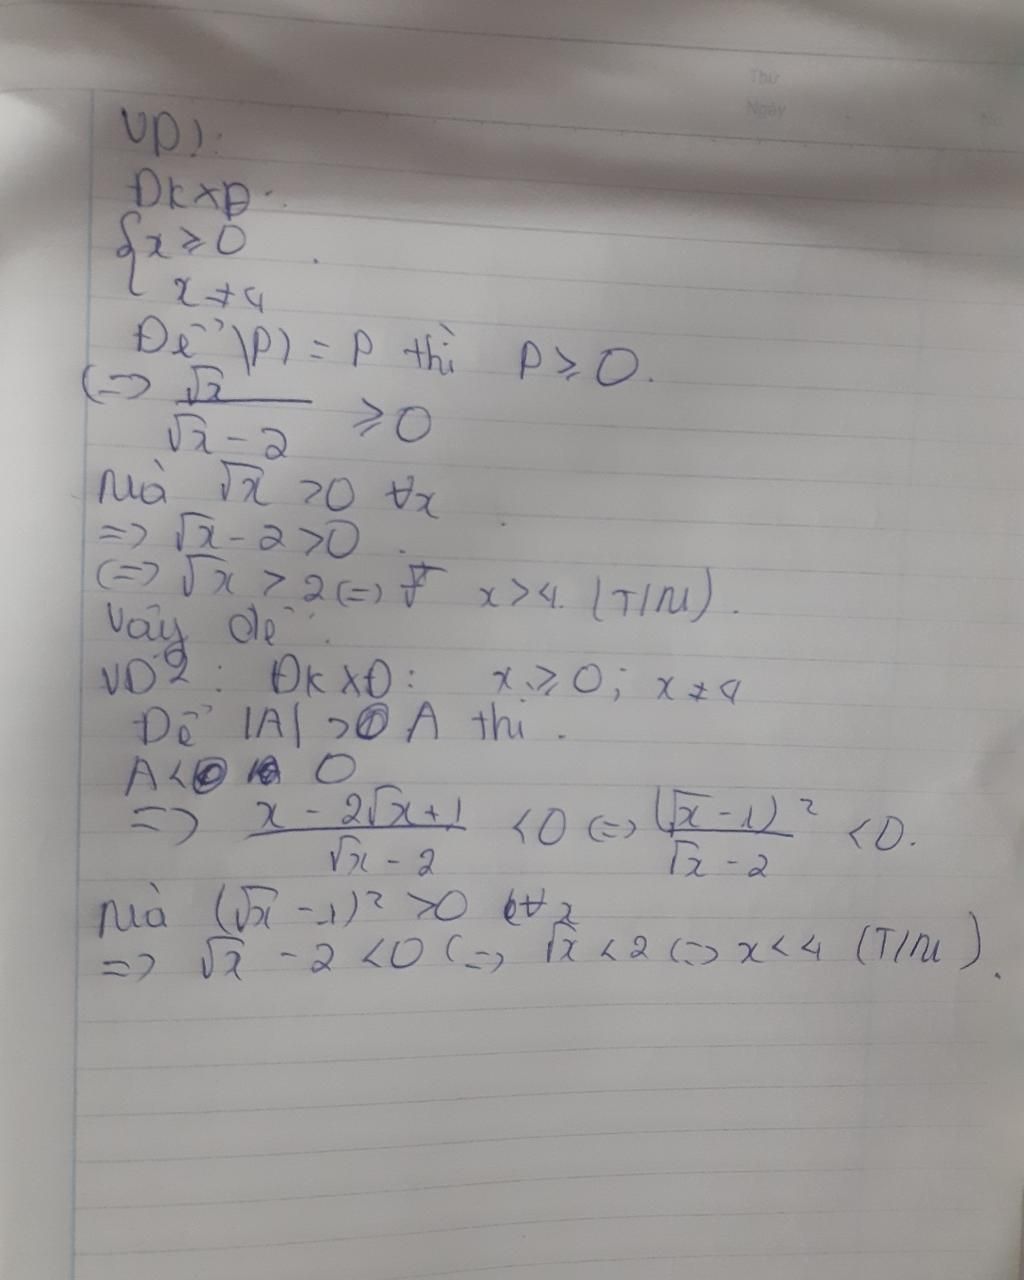 Thứ
Ngày
VD1:
ĐKXĐ:
{x ≥ 0
x ≠ 4
Để |P| = P thì P ≥ 0.
(=> √x / (√x - 2) ≥ 0
Mà √x > 0 ∀x
=> √x - 2 > 0
(=> √x > 2 (=) x > 4. (T/M).
Vậy để
VD2: ĐKXĐ: x ≥ 0; x ≠ 4
Để |A| > A thì.
A < 0
=> (x - 2√x + 1) / (√x - 2) < 0 (=> (√x - 1)² / (√x - 2) < 0.
Mà (√x - 1)² > 0 ∀x
=> √x - 2 < 0 (=> √x < 2 (=> x < 4 (T/M).